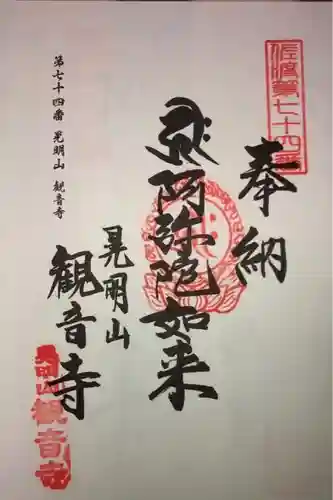 佐渡第七十四番
奉納
阿弥陀如来
晃明山
観音寺
第七十四番 晃明山 観音寺
晃明山観音寺